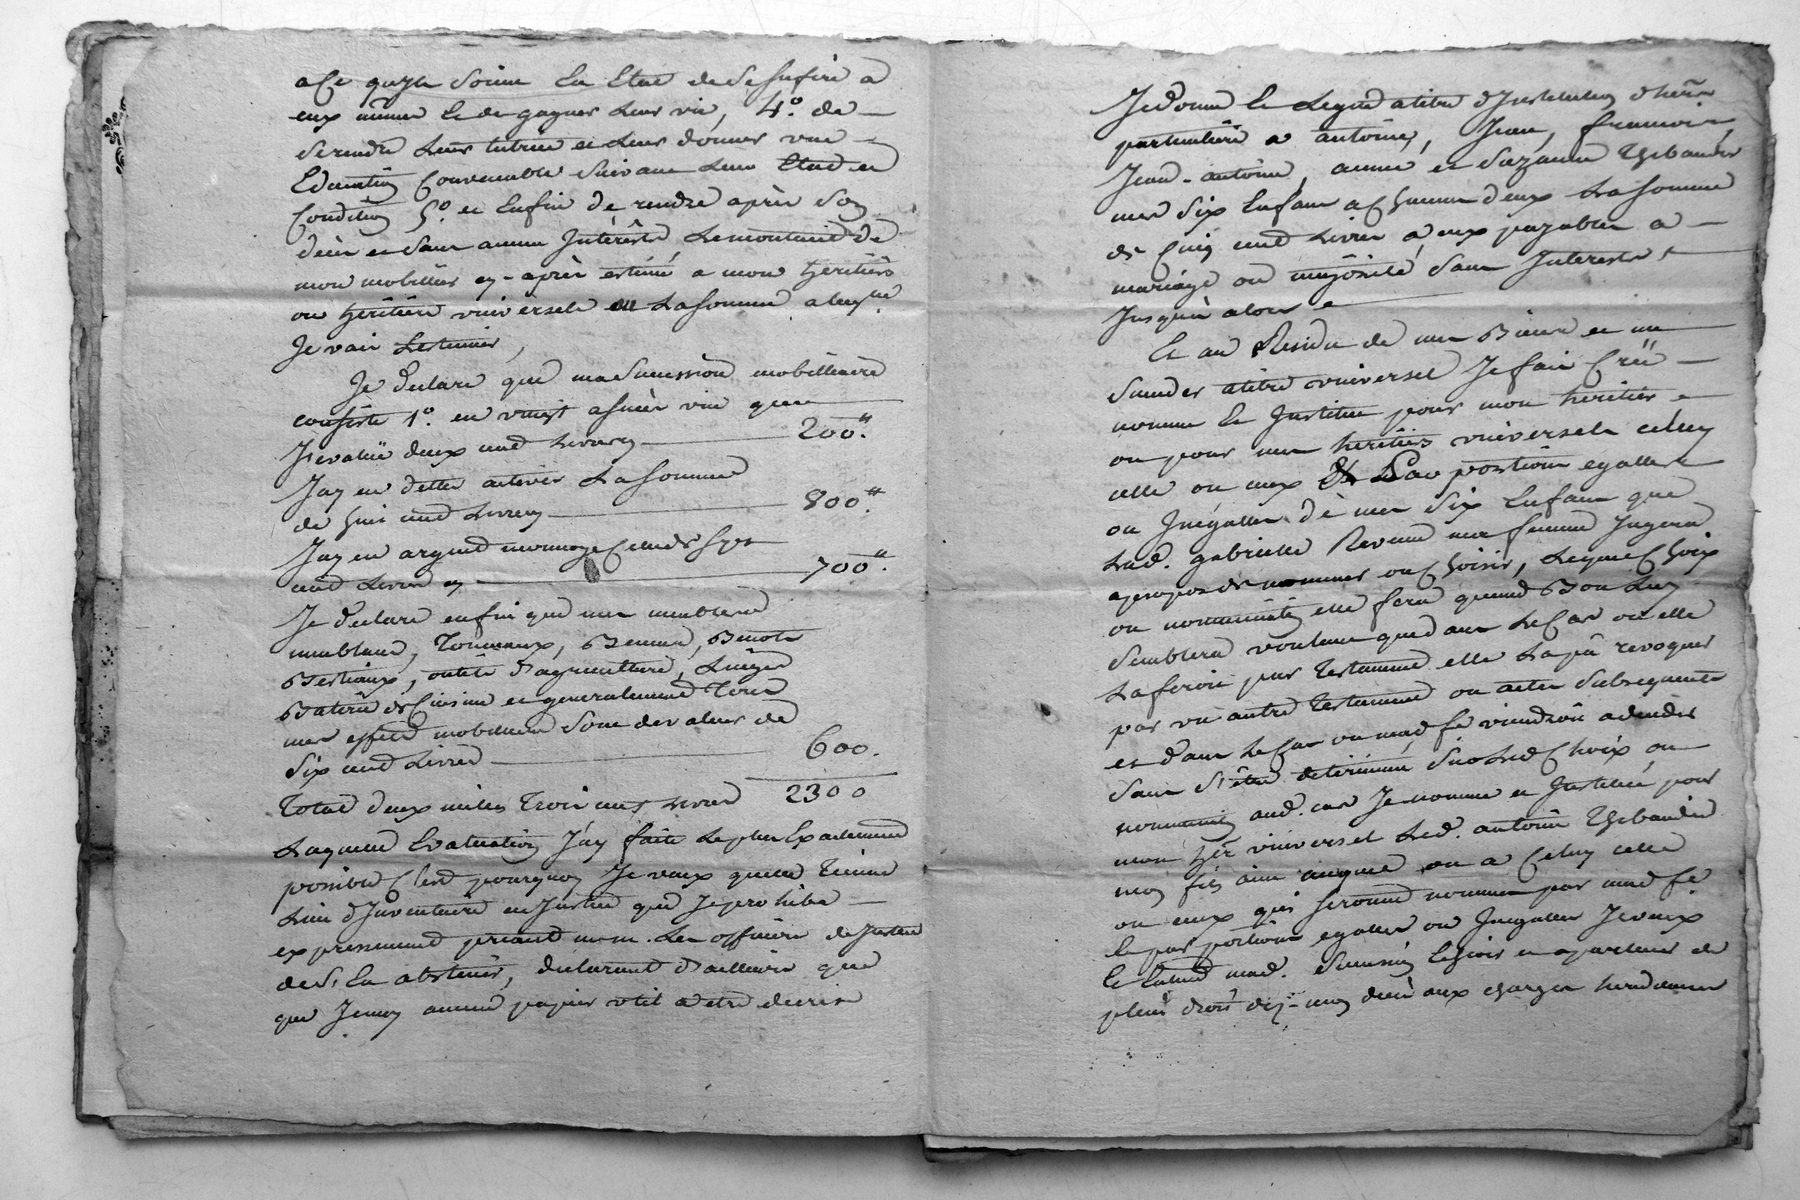 a Ce quils soient En Etat de se sufire a
eux même et de gagner Leur vie, 4.º de
Se rendre Leur tutrice et Leur donner une
Education Convenable suivant Leur Etat et
Condition 5.º et Enfin de rendre après son
déces et sans aucun Intérêts, Le montant de
mon mobillier cy-après estimé a mon héritiers
ou héritière universele en La somme a laquelle
Je vais Lestimer,
Je déclare que ma succession mobilliaire
consiste 1.º en vingt asnées vin que
J'evalüe deux cent Livres cy 200.tt
Jay en dettes actives La somme
de huit cent Livres cy 800.tt
Jay en argent monnoye Celle de sept
cent Livres cy 700.tt
Je déclare enfin que mes meubles
meublant, Tonneaux, Bennes, Benots
Bestiaux, outils d'agriculture, Linges
Batterie de Cuisine et generalement Tous
mes effets mobiliers sont de valeur de
Six cent Livres 600.
Total deux milles Trois cent Livres 2300
Laquelle Evaluation J'ay faite Le plus Exactement
possible C'est pourquoy Je veux quelle Tienne
Lieu d'Inventaire en Justice que Je prohibe
expressement priant mm. Les officiers de Justice
de s'En abstenir, declarant d'ailleurs que
que Je n'ay aucun papier util a etre décrit
Je donne et Legue a titre d'Institution d'hérie
particulière a antoine, Jean, francois,
Jean-antoine, anne et Suzanne Thibaudier
mes Six Enfans a Chacun d'eux La somme
de Cinq cent Livres a eux payables a
mariage ou majorité sans Interests
Jusqu'à alors
Et au Résidu de mes Biens et un
Sundes a titre universel Je fais Créé
nomme et Institue pour mon héritier
ou pour mes héritiers universels celuy
celle ou ceux Et Par portions egalles
ou Inégalles de mes Six Enfans que
Lad. gabrielle Revend ma femme Jugera
apropos de nommer ou Choisir, Lequel Choix
ou nomination elle fera quand Bon Luy
Semblera voulant que dans Le Cas ou elle
La feroit par Testament elle La pû revoquer
par un autre Testament ou actes Subsequents
et dans Le Cas ou mad fe viendroit a décéder
sans s'être déterminé Sur Led Choix ou
nomination aud. cas Je nomme et Institue pour
mon hér universel Led. antoine Thibaudier
mon fils ainé auquel ou a Celuy celle
ou ceux qui seront nommés par mad fe
et par portions egalles ou Inégalles Je veux
Et Entend mad. Succession Echoir et apartenir de
plein droit dez-mon déces aux charges heréditaires